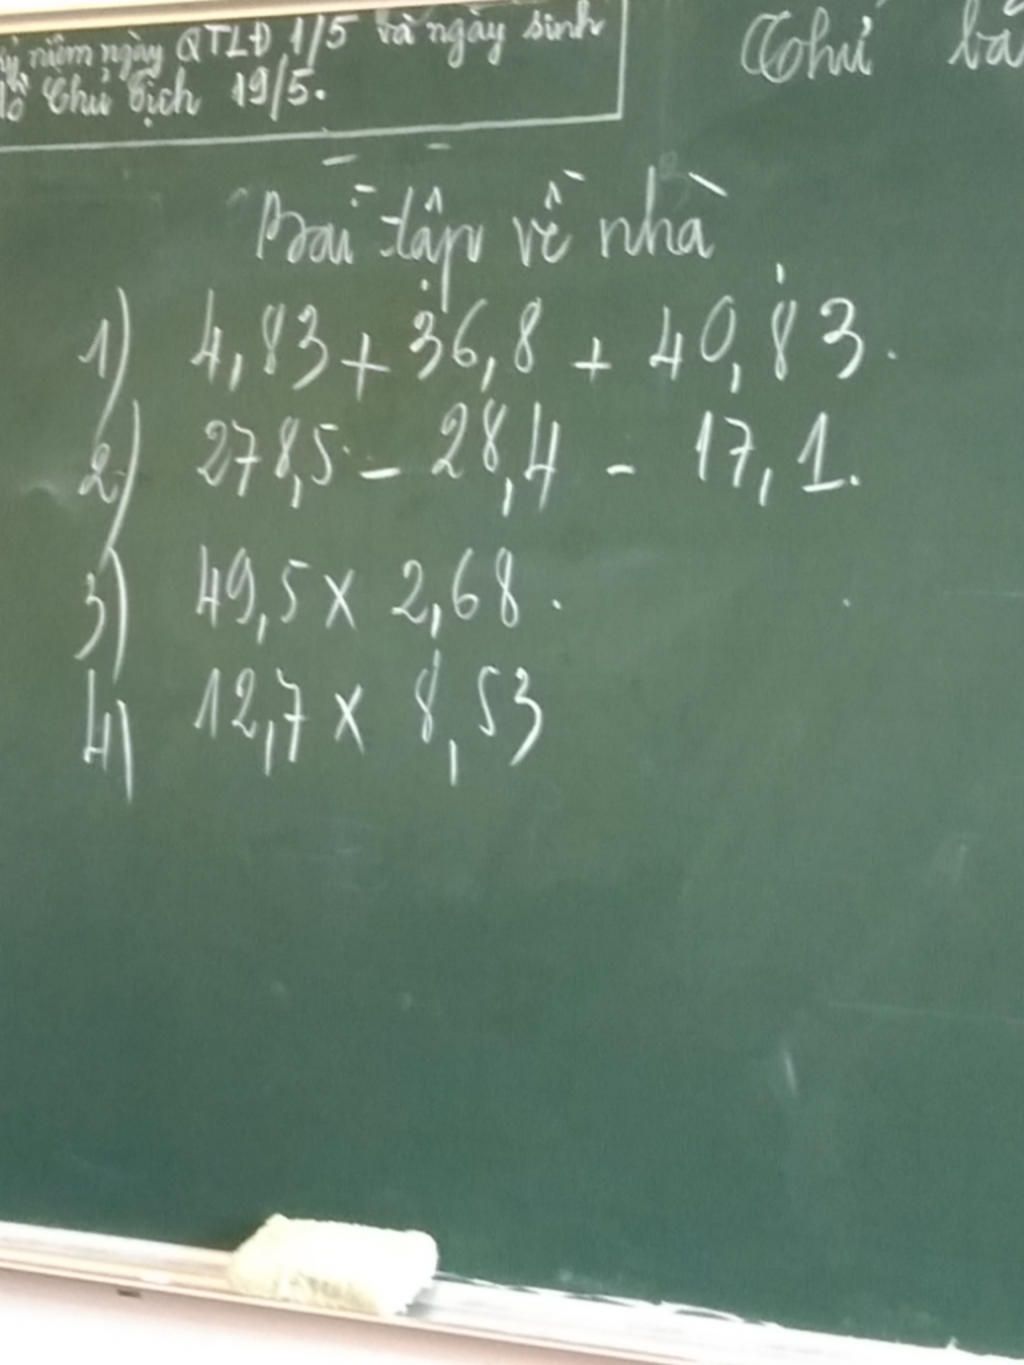 kỷ niệm ngày QTLĐ 1/5 và ngày sinh
Chủ tịch 19/5.
Thứ
Bài tập về nhà
1) 4,83 + 36,8 + 40,83.
2) 278,5 - 28,4 - 17,1.
3) 49,5 x 2,68.
4) 12,7 x 8,53